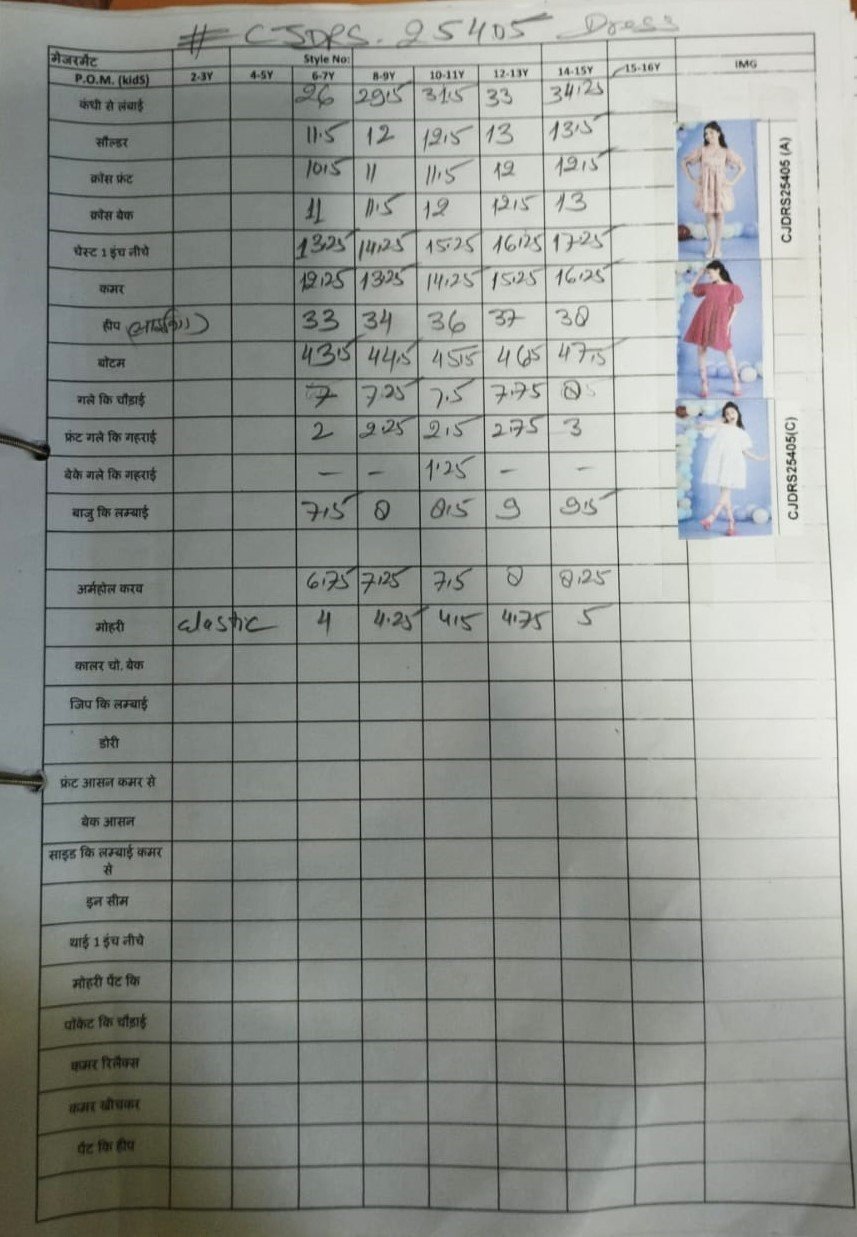 # CJDRS. 25405 Dress
मेजरमेंट Style No:
P.O.M. (kidS) 2-3Y 4-5Y 6-7Y 8-9Y 10-11Y 12-13Y 14-15Y 15-16Y IMG
कंधी से लंबाई 26 29.5 31.5 33 34.25
सौल्डर 11.5 12 12.5 13 13.5
क्रोस फ्रंट 10.5 11 11.5 12 12.5
क्रोस बेक 11 11.5 12 12.5 13
चेस्ट 1 इंच नीचे 13.25 14.25 15.25 16.25 17.25
कमर 12.25 13.25 14.25 15.25 16.25
हीप 33 34 36 37 38
बोटम 43.5 44.5 45.5 46.5 47.5
गले कि चौड़ाई 7 7.25 7.5 7.75 8
फ्रंट गले कि गहराई 2 2.25 2.5 2.75 3
बेके गले कि गहराई - - 1.25 - -
बाजु कि लम्बाई 7.5 8 8.5 9 9.5
अर्महोल करव 6.75 7.25 7.5 8 8.25
मोहरी elastic 4 4.25 4.5 4.75 5
कालर चो. बेक
जिप कि लम्बाई
डोरी
फ्रंट आसन कमर से
बेक आसन
साइड कि लम्बाई कमर
से
इन सीम
थाई 1 इंच नीचे
मोहरी पेंट कि
पॉकेट कि चौड़ाई
कमर रिलैक्स
कमर खीचकर
पेंट कि हीप
CJDRS25405 (A)
CJDRS25405(C)